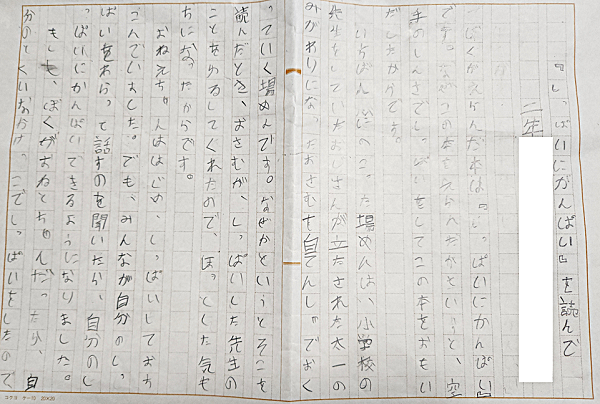 『しっぱいにかんぱい』を読んで
二年
ぼくがえらんだ本は『しっぱいにかんぱい』
です。なぜこの本をえらんだかというと、空
手のしあいでしっぱいをしてこの本をおもい
だしたからです。
いちばん心にのこった場めんは、小学校の
先生をしていたおじさんが立たされた太一の
みがわりになったおさむを自てんしゃでおく
っていく場めんです。なぜかというとそこを
読んだとき、おさむが、しっぱいした先生の
ことをゆるしてくれたので、ほっとした気も
ちになったからです。
おねえちゃんははじめ、しっぱいしておち
こんでいました。でも、みんなが自分のしっ
ぱいをわらって話すのを聞いたら、自分のし
っぱいにかんぱいできるようになりました。
もしも、ぼくがおねえちゃんだったら、自
分のとくいな ここでしっぱいをしたので
コクヨ ケー70 20×20